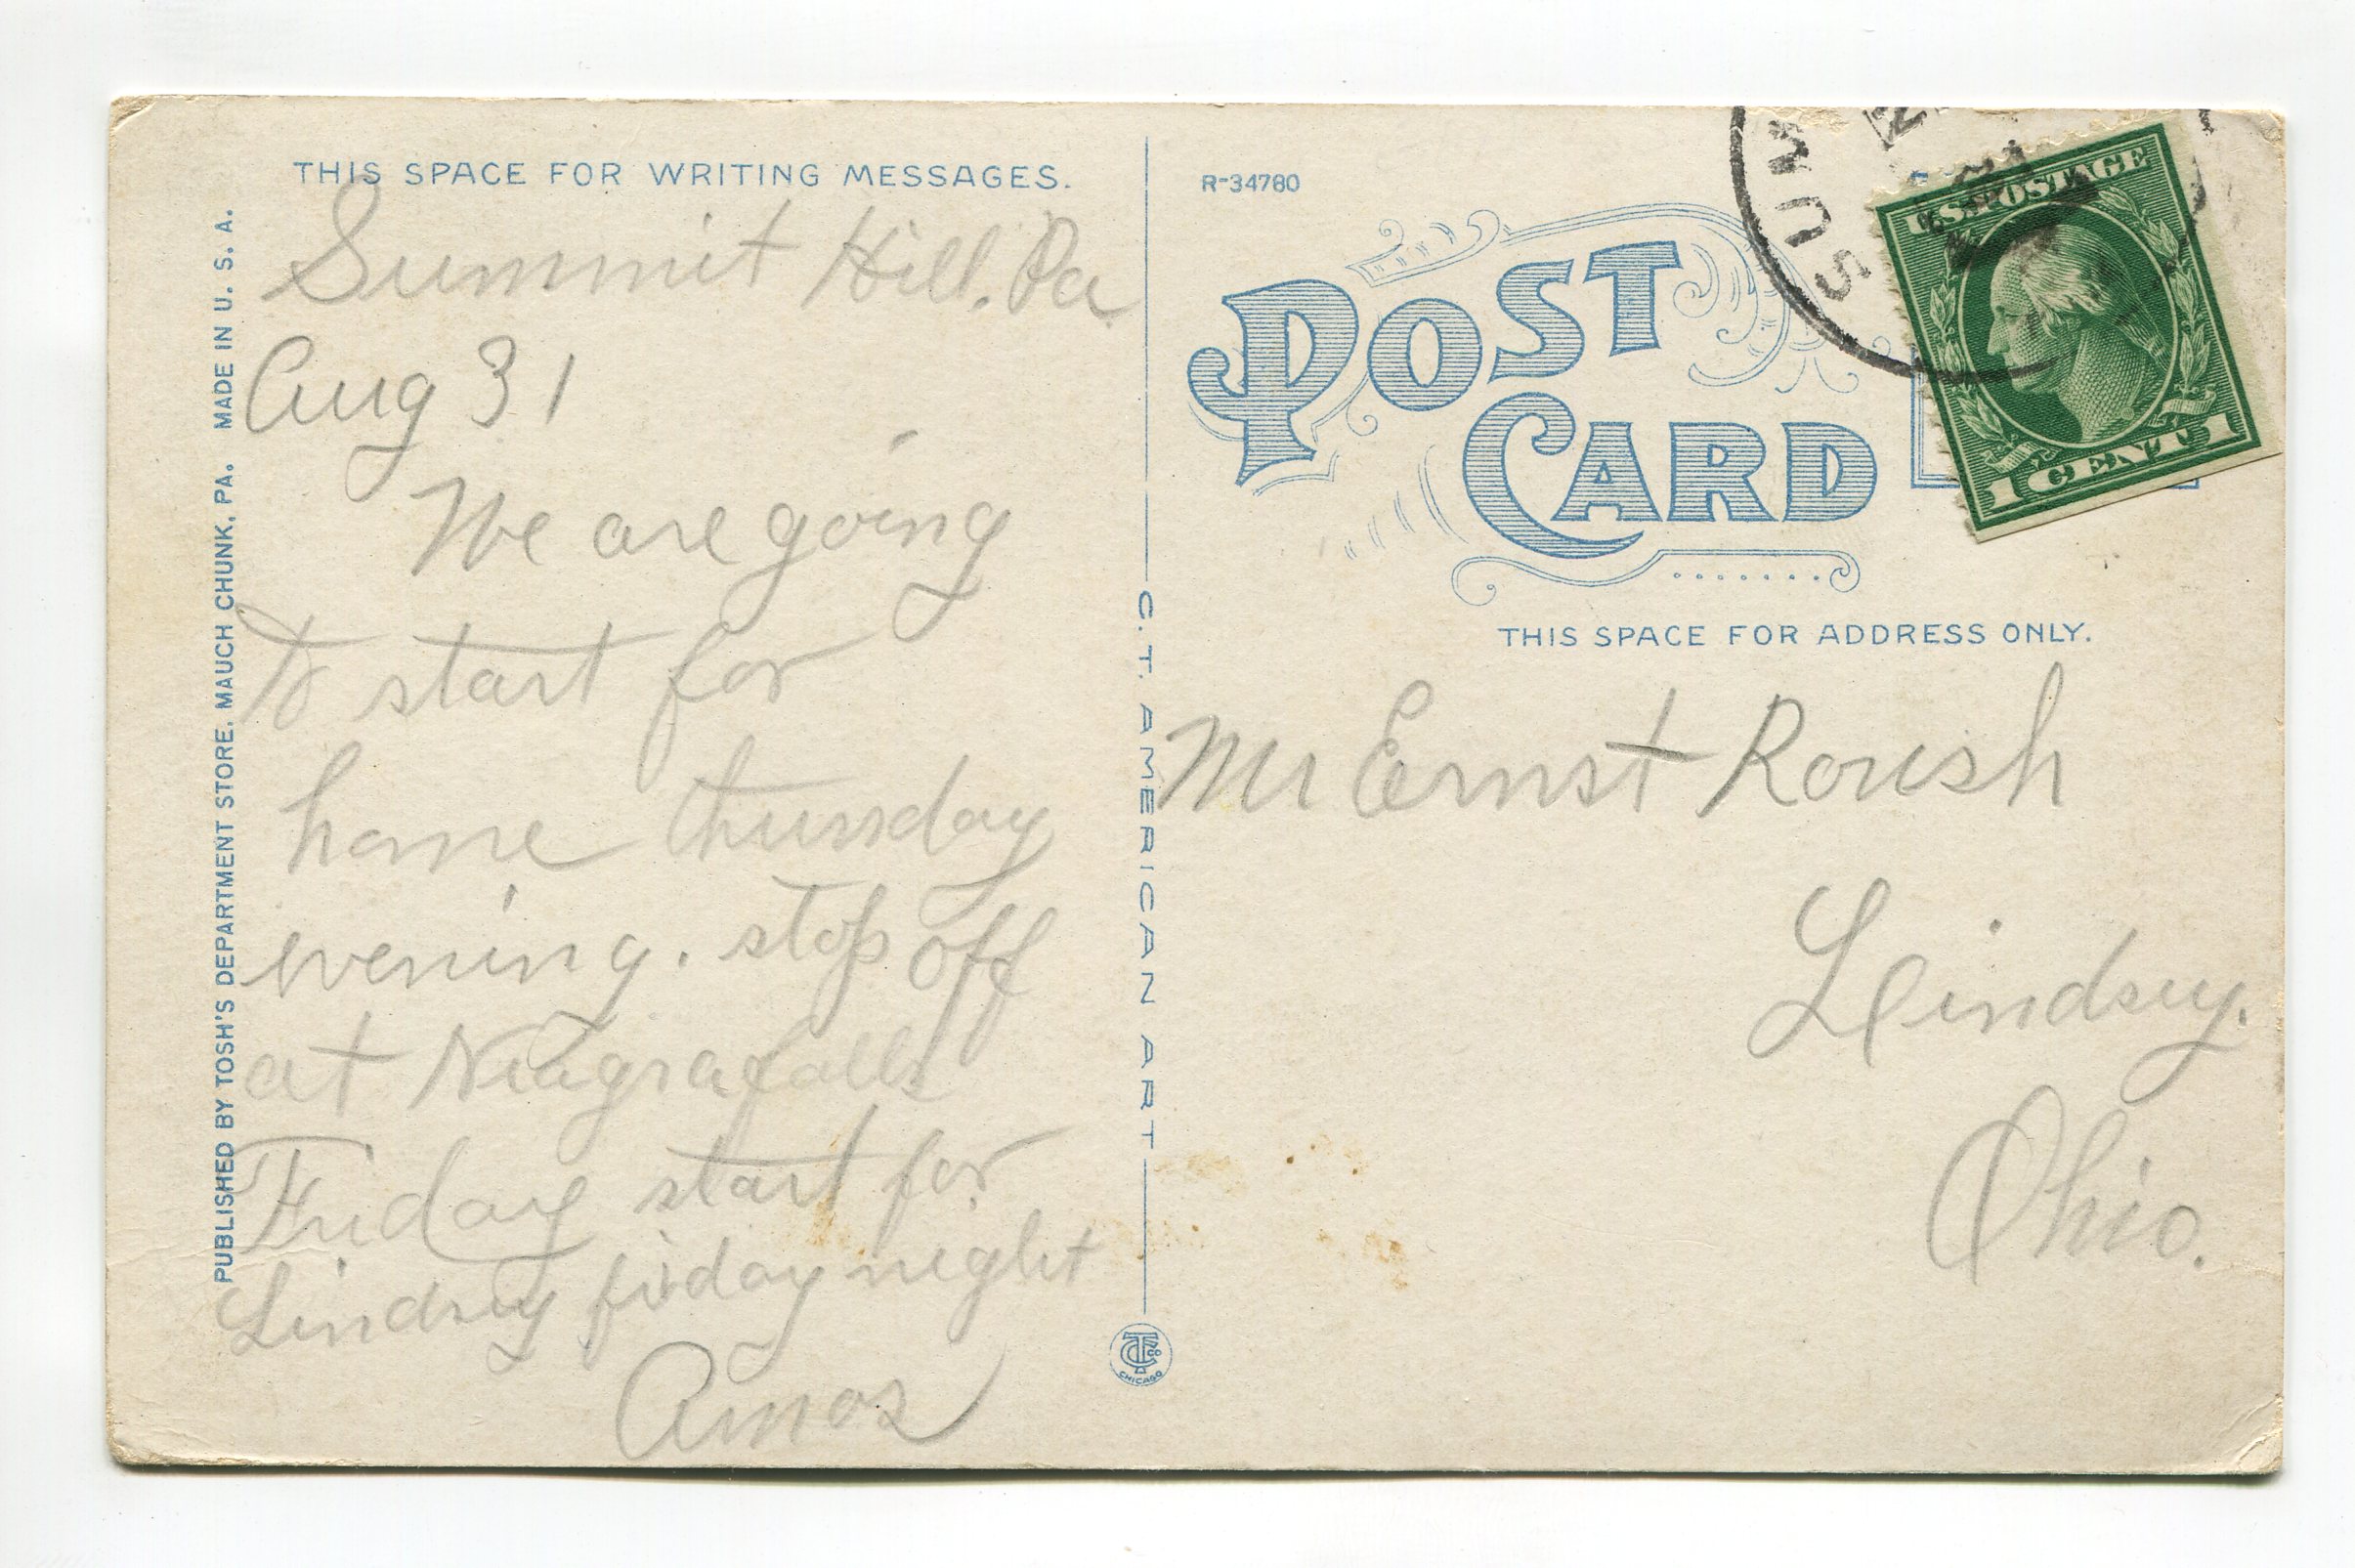 THIS SPACE FOR WRITING MESSAGES.
Summit Hill, Pa
Aug 31
We are going
to start for
home thursday
evening. stop off
at Niagra falls
Friday start for
Lindsey friday night
Amos
PUBLISHED BY TOSH'S DEPARTMENT STORE, MAUCH CHUNK, PA. MADE IN U. S. A.
C. T. AMERICAN ART
CTCo
CHICAGO
R-34780
POST
CARD
THIS SPACE FOR ADDRESS ONLY.
Mr Ernst Roush
Lindsey.
Ohio.
SUM
U.S. POSTAGE
1 CENT 1